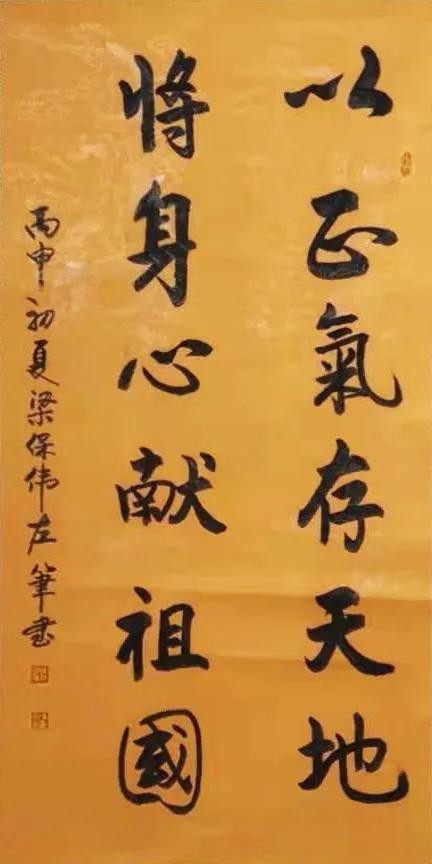 以正氣存天地
将身心献祖國
丙申初夏梁保伟左筆書